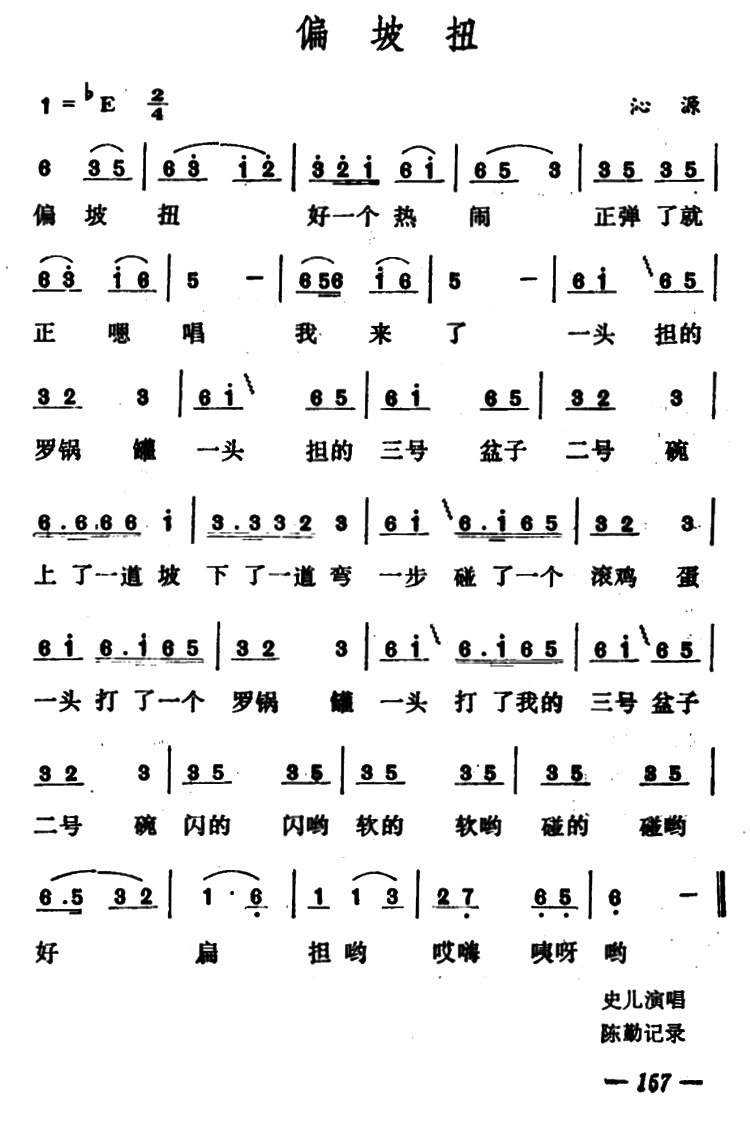 偏坡扭
1=♭E 2/4 沁源
6 35 | 63̇ 1̇2̇ | 3̇2̇1̇ 61̇ | 65 3 | 35 35 |
偏坡扭 好一个热闹 正弹了就
63̇ 1̇6 | 5 － | 656 1̇6 | 5 － | 61̇ 65 |
正嗯唱 我来了 一头担的
32 3 | 61̇ 65 | 61̇ 65 | 32 3 |
罗锅罐一头担的三号盆子二号碗
6.666 1̇ | 3.332 3 | 61̇ 6.1̇65 | 32 3 |
上了一道坡下了一道弯一步碰了一个滚鸡蛋
61̇ 6.1̇65 | 32 3 | 61̇ 6.1̇65 | 61̇ 65 |
一头打了一个罗锅罐一头打了我的三号盆子
32 3 | 35 35 | 35 35 | 35 35 |
二号碗闪的闪哟软的软哟碰的碰哟
6.5 32 | 1·6̣ | 1 13 | 27̣ 6̣5̣ | 6̣ － ‖
好扁担哟哎嗨咦呀哟
史儿演唱
陈勤记录
— 157 —